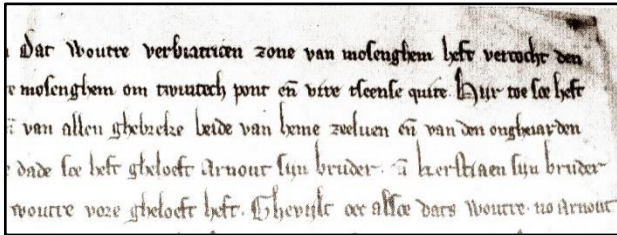 Dat Woutre verbiatricen zone van mosenghem heft vercocht den
mosenghem om twintech pont eñ vire tleense quite. Hijr toe soe heft
van allen ghebreke beide van heme zeeluen eñ van den onghiarden
dade soe heft gheloeft Arnout sijn bruder. kerstiaen sijn bruder
woutre vore gheloeft heft. Ghevijlt oec alsoe dats Woutre. no Arnout